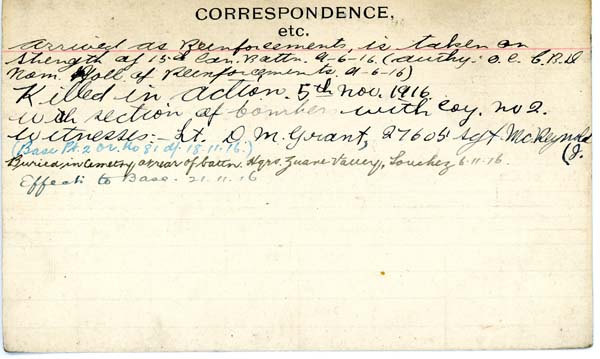 CORRESPONDENCE,
etc.
Arrived as Reinforcements, is taken on
Strength of 15th Can. Battn. 9-6-16. (authy:- O.C. C.B.D
Nom. Roll of Reinforcements. 9-6-16)
Killed in action. 5th Nov. 1916
With section of bombers with coy. no 2.
Witnesses:- Lt. D. M. Grant, 27605 Sgt McReynolds
(Base Pt. 2 Or. No 81 d/ 18.11.16.) (J.
Buried in Cemetery at rear of battn. Hqrs. Zuave Valley, Souchez 6.11.16.
Effects to Base. 21.11.16